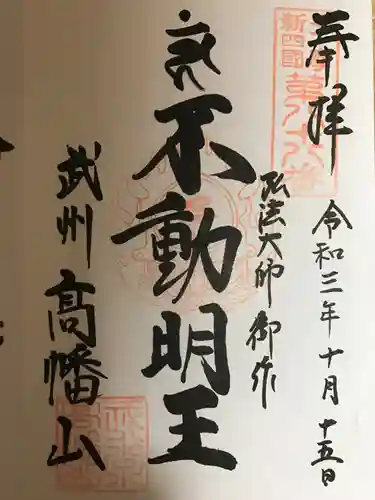 奉拝
令和三年十月十五日
新四國
第八十八番
弘法大師御作
不動明王
武州
髙幡山